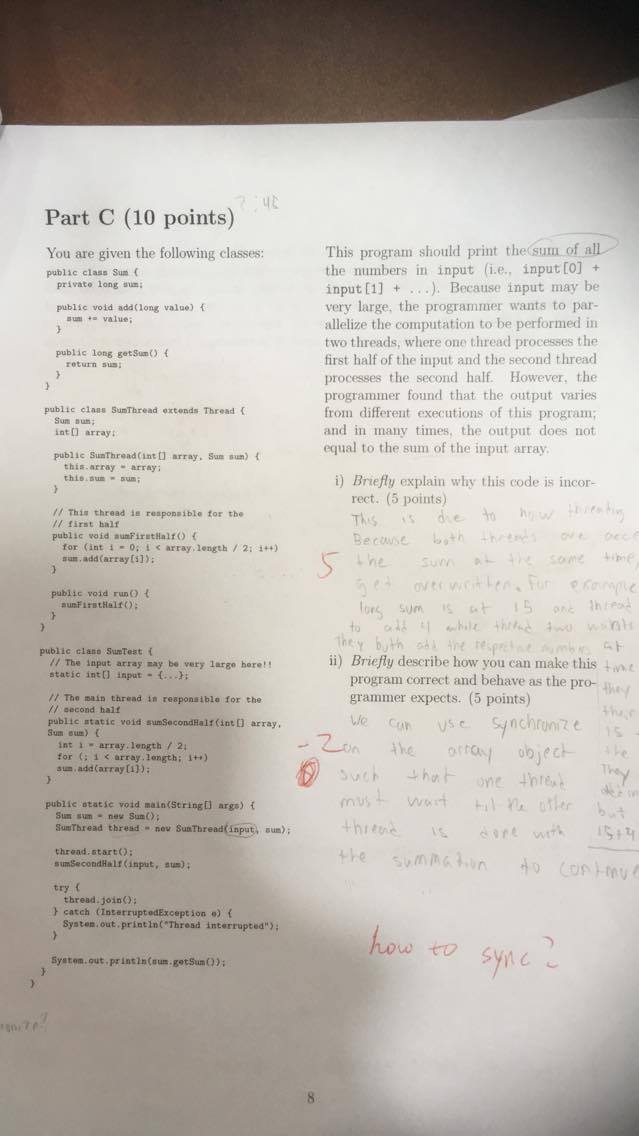 ? : 48
Part C (10 points)
You are given the following classes:
public class Sum {
private long sum;
public void add(long value) {
sum += value;
}
public long getSum() {
return sum;
}
}
public class SumThread extends Thread {
Sum sum;
int[] array;
public SumThread(int[] array, Sum sum) {
this.array = array;
this.sum = sum;
}
// This thread is responsible for the
// first half
public void sumFirstHalf() {
for (int i = 0; i < array.length / 2; i++)
sum.add(array[i]);
}
public void run() {
sumFirstHalf();
}
}
public class SumTest {
// The input array may be very large here!!
static int[] input = {...};
// The main thread is responsible for the
// second half
public static void sumSecondHalf(int[] array,
Sum sum) {
int i = array.length / 2;
for (; i < array.length; i++)
sum.add(array[i]);
}
public static void main(String[] args) {
Sum sum = new Sum();
SumThread thread = new SumThread(input, sum);
thread.start();
sumSecondHalf(input, sum);
try {
thread.join();
} catch (InterruptedException e) {
System.out.println("Thread interrupted");
}
System.out.println(sum.getSum());
}
}
This program should print the sum of all
the numbers in input (i.e., input[0] +
input[1] + ...). Because input may be
very large, the programmer wants to par-
allelize the computation to be performed in
two threads, where one thread processes the
first half of the input and the second thread
processes the second half. However, the
programmer found that the output varies
from different executions of this program;
and in many times, the output does not
equal to the sum of the input array.
i) Briefly explain why this code is incor-
rect. (5 points)
This is due to how threading
Because both threads are acce
5 the sum at the same time,
get overwritten. For example
long sum is at 15 and thread
to add 4 while thread two wants
They both add the respective numbers at
ii) Briefly describe how you can make this
program correct and behave as the pro-
grammer expects. (5 points)
time
they
their
is
the
They
but
15+4
We can use synchronize
-2 on the array object
such that one thread
must wait til the other
thread is done with
the summation to continue
how to sync?
8